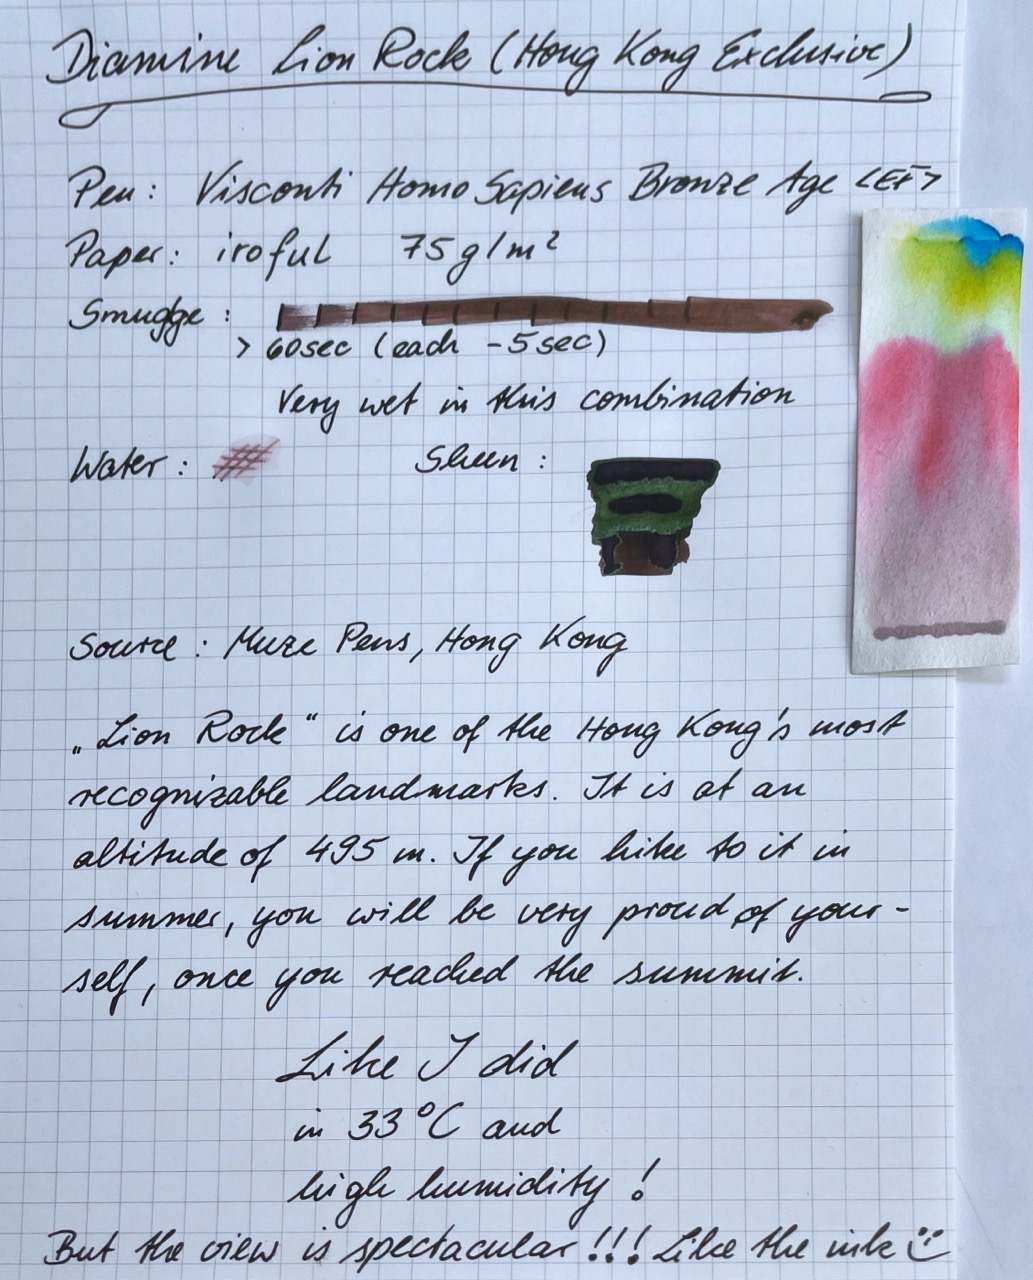 Diamine Lion Rock (Hong Kong Exclusive)
Pen: Visconti Homo Sapiens Bronze Age <EF>
Paper: iroful 75 g/m²
Smugge:
> 60sec (each -5sec)
Very wet in this combination
Water: Sheen:
Source: Muze Pens, Hong Kong
„Lion Rock“ is one of the Hong Kong's most
recognizable landmarks. It is at an
altitude of 495 m. If you hike to it in
summer, you will be very proud of your-
self, once you reached the summit.
Like I did
in 33°C and
high humidity!
But the view is spectacular!!! Like the ink